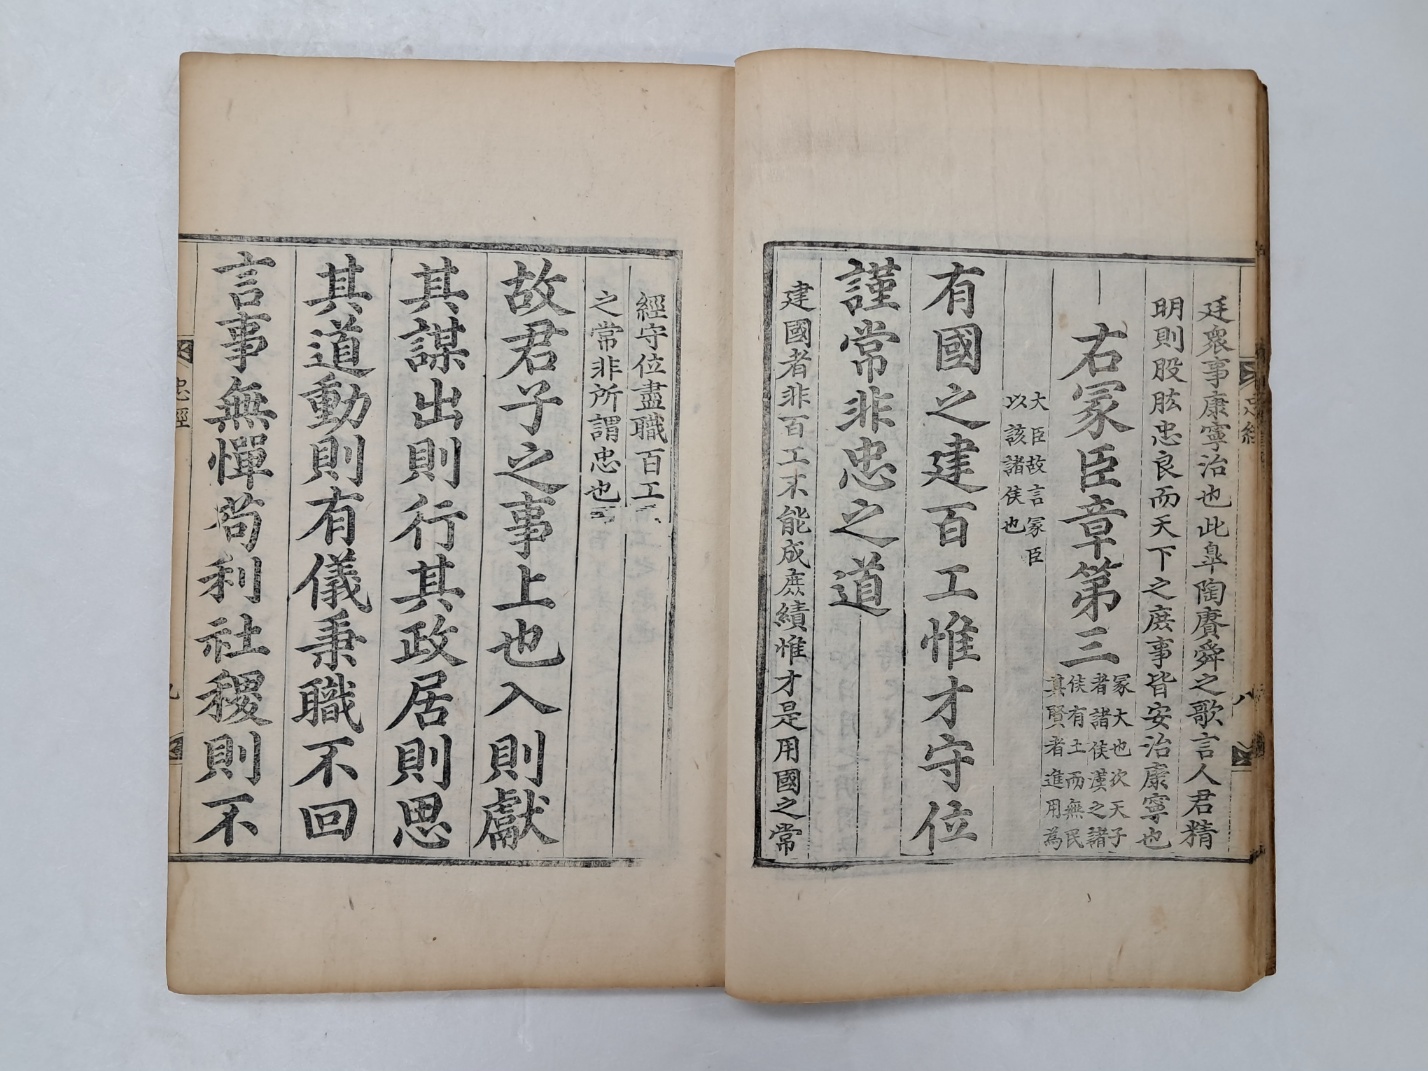 廷衆事康寧治也此臯陶賡舜之歌言人君精
明則股肱忠良而天下之庶事皆安治康寧也
右冢臣章第三
冢大也次天子
者諸侯漢之諸
侯有土而無民
真賢者進用為
大臣故言冢臣
以該諸侯也
有國之建百工惟才守位
謹常非忠之道
建國者非百工不能成庶績惟才是用國之常
經守位盡職百工
之常非所謂忠也
故君子之事上也入則獻
其謀出則行其政居則思
其道動則有儀秉職不回
言事無憚苟利社稷則不
忠經
九
忠經
八